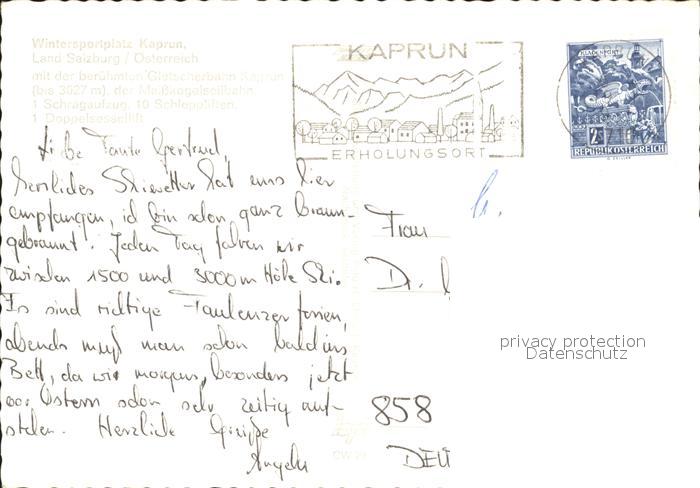 Wintersportplatz Kaprun,
Land Salzburg / Österreich
mit der berühmten Gletscherbahn Kaprun
(bis 3027 m), der Maiskogelseilbahn,
1 Schrägaufzug, 10 Schlepplifte,
1 Doppelsessellift
KAPRUN
ERHOLUNGSORT
KLAGENFURT
2S
REPUBLIK ÖSTERREICH
Liebe Tante Gertrud,
herrliches Skiwetter hat uns hier
empfangen, ich bin schon ganz braun-
gebrannt. Jeden Tag fahren wir
zwischen 1500 und 3000 m Höhe Ski.
Es sind richtige Faulenzerferien,
abends muß man schon bald ins
Bett, da wir morgens, besonders jetzt
vor Ostern schon sehr zeitig auf-
stehen. Herzliche Grüße
Angela
Frau
Dr.
858
DEU
privacy protection
Datenschutz